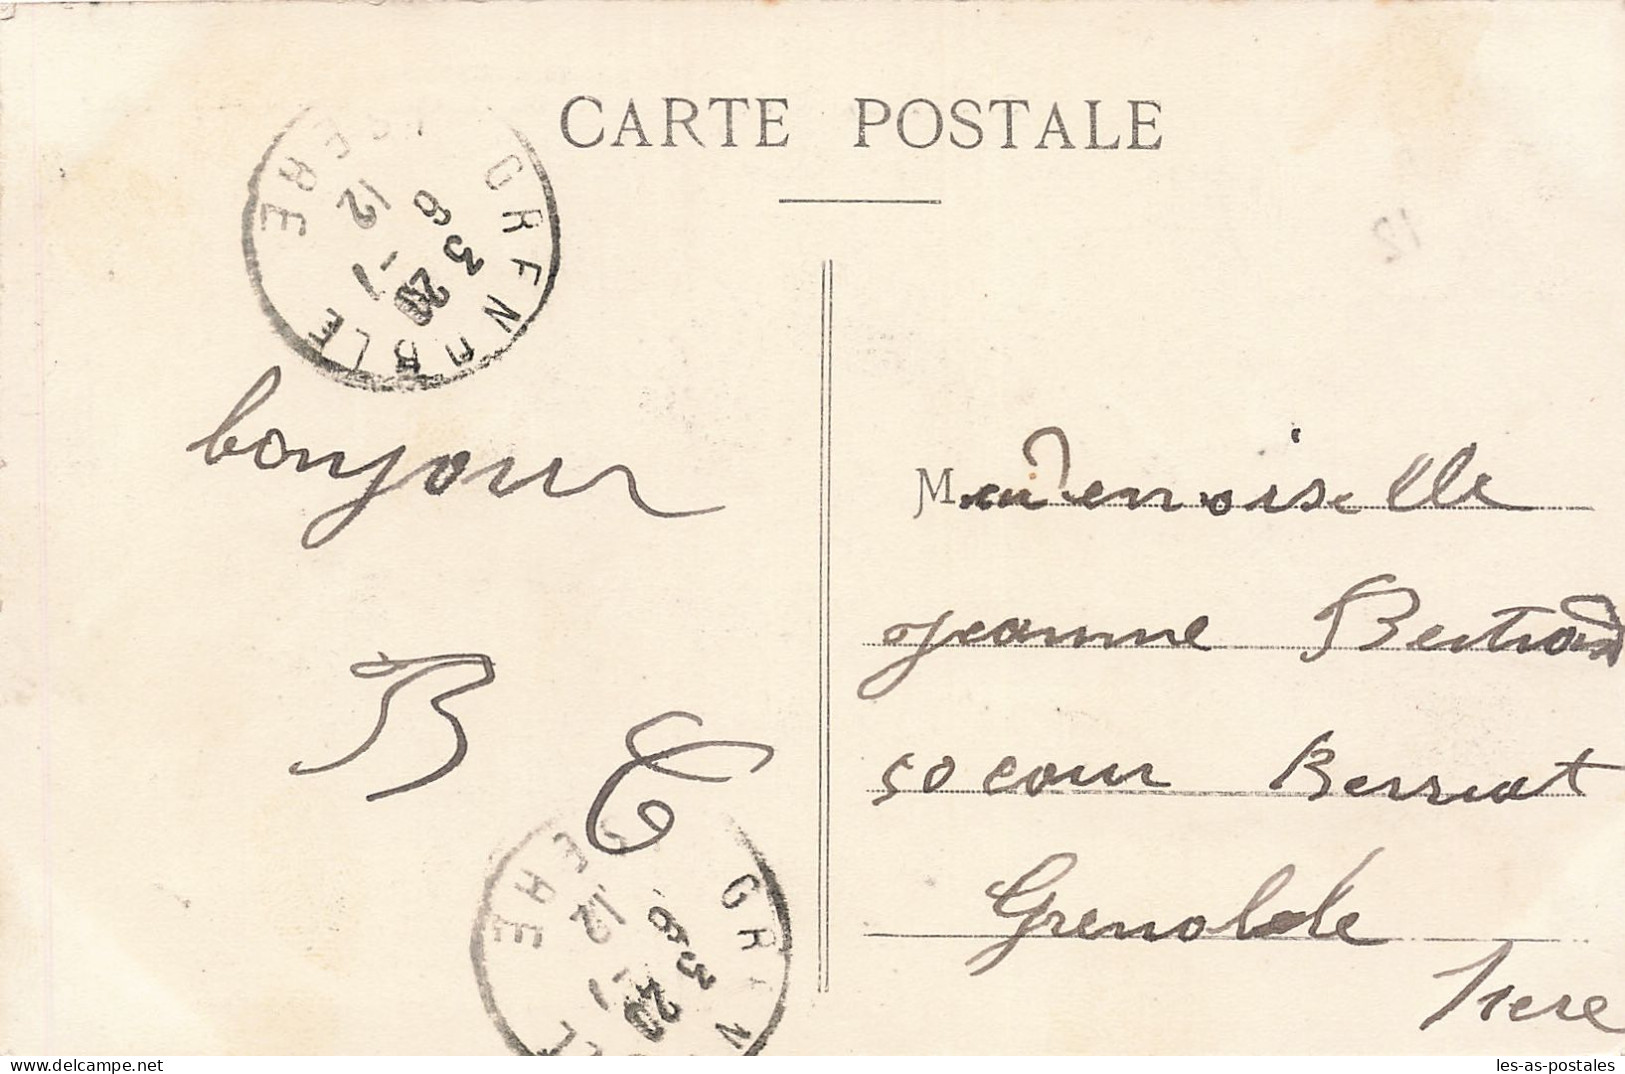 CARTE POSTALE
GRENOBLE
ISERE
12 -1
6 3 20
12
bonjour
B C
Mademoiselle
Jeanne Bertrand
50 cour Berriat
Grenoble
Isere
GRENOBLE
ISERE
12 -1
6 3 20
les-as-postales